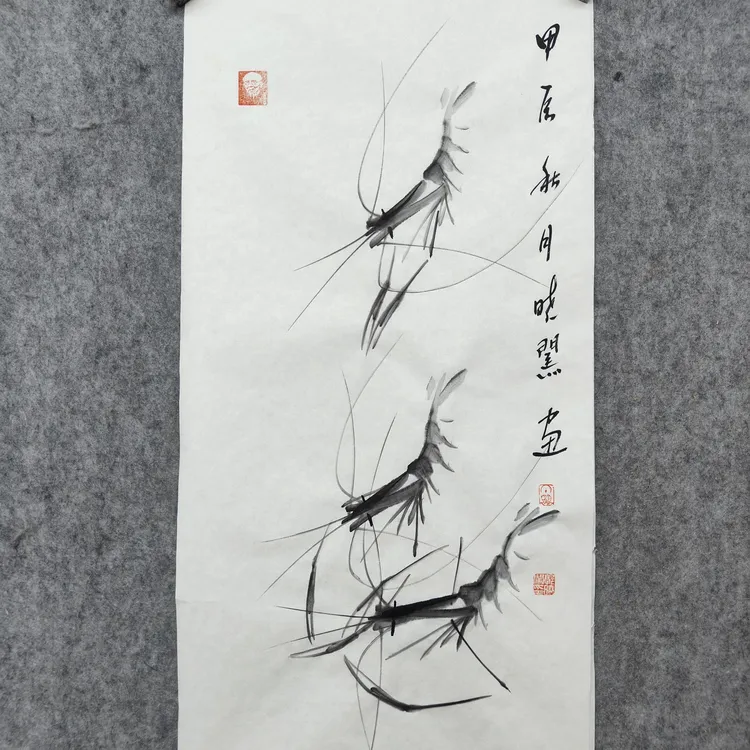 甲辰秋月晓画